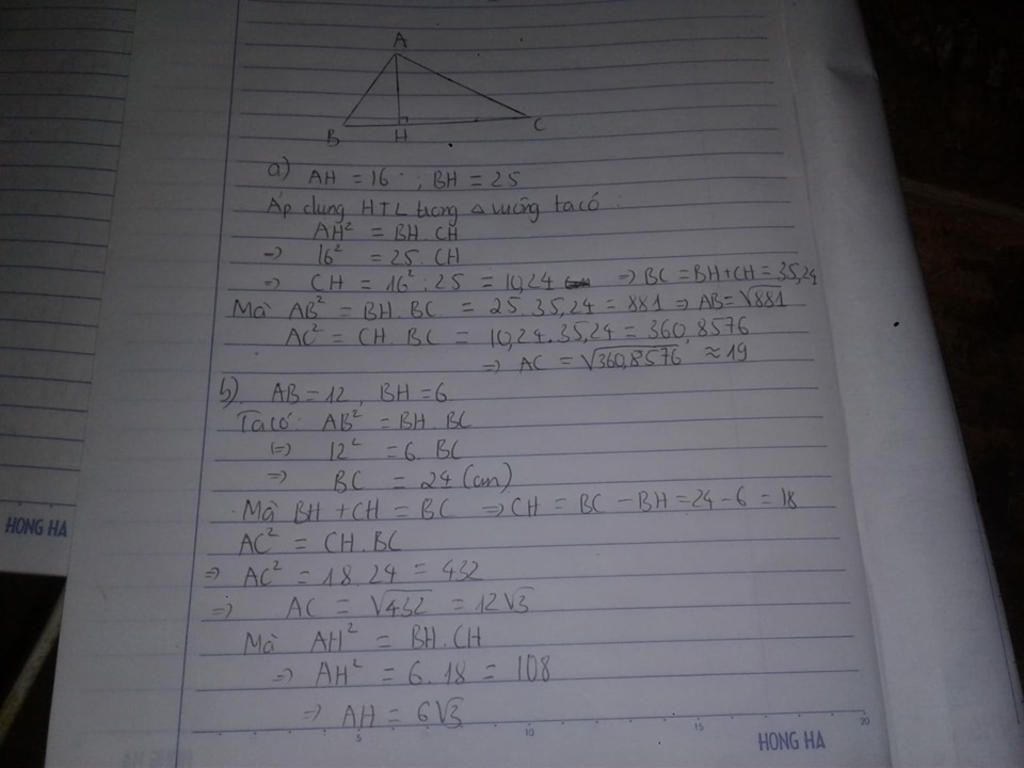 A
B H C
a) AH = 16 ; BH = 25
Áp dụng HTL trong Δ vuông ta có :
AH² = BH . CH
→ 16² = 25 . CH
⇒ CH = 16² : 25 = 10,24 ⇒ BC = BH + CH = 35,24
Mà AB² = BH . BC = 25 . 35,24 = 881 ⇒ AB = √881
AC² = CH . BC = 10,24 . 35,24 = 360,8576
⇒ AC = √360,8576 ≈ 19
b). AB = 12 , BH = 6
Ta có : AB² = BH . BC
(=) 12² = 6 . BC
⇒ BC = 24 (cm)
Mà BH + CH = BC ⇒ CH = BC - BH = 24 - 6 = 18
AC² = CH . BC
⇒ AC² = 18 . 24 = 432
⇒ AC = √432 = 12√3
Mà AH² = BH . CH
⇒ AH² = 6 . 18 = 108
⇒ AH = 6√3
5 10 15 20
HONG HA
HONG HA